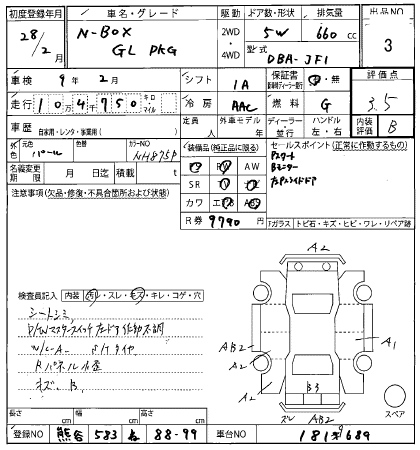 初度登録年月 車名・グレード 駆動 ドア数・形状 排気量 出品NO
28/2 N-BOX GL PKG 2WD・4WD 5W 660cc 3
型式 DBA-JF1
車検 9年2月 シフト IA 保証書 有・無 評価点
走行 10万4千750 キロ・マイル 冷房 AAC 燃料 G 3.5
車歴 自家用・レンタ・事業用( ) 定員 人 外車モデル 年 ディーラー 並行 ハンドル 左・右 内装評価 B
外色 元色 パール 色替 カラーNO NH875P
装備品(純正品に限る) セールスポイント(正常に作動するもの)
名義変更期限 月 日迄 積載 t
AW
Pスタート
Bモニター
SR
カワ
R券 9790
注意事項(欠品・修復・不具合箇所および状態)
Fガラス トビ石・キズ・ヒビ・ワレ・リペア跡
A2
検査員記入 内装 汚レ・スレ・キズ・キレ・コゲ・穴
シートシミ
P/Wマスタースイッチ左ドア作動不調
W/L-A
Rパネル
キズ、B
AB2
A1
A2
A2
B3
AB2
スペア
長さ cm 幅 cm 高さ cm
登録NO 熊谷 583 88-99 車台NO 181 689